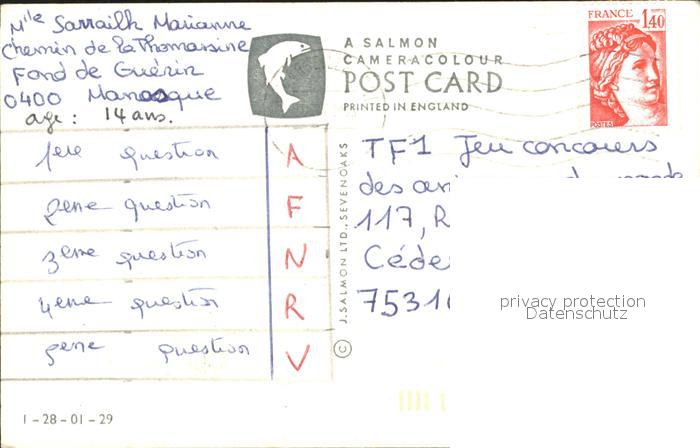 Mlle Sarrailh Marianne
Chemin de la Thomassine
Fond de Guérin
0400 Manosque
age : 14 ans.
1ere question A
2eme question F
3eme question N
4eme question R
5eme question V
1-28-01-29
A SALMON
CAMERACOLOUR
POST CARD
PRINTED IN ENGLAND
© J. SALMON LTD., SEVENOAKS
FRANCE 1,40
POSTES
TF1 Jeu concours
des
117, R
Céde
7531
privacy protection
Datenschutz